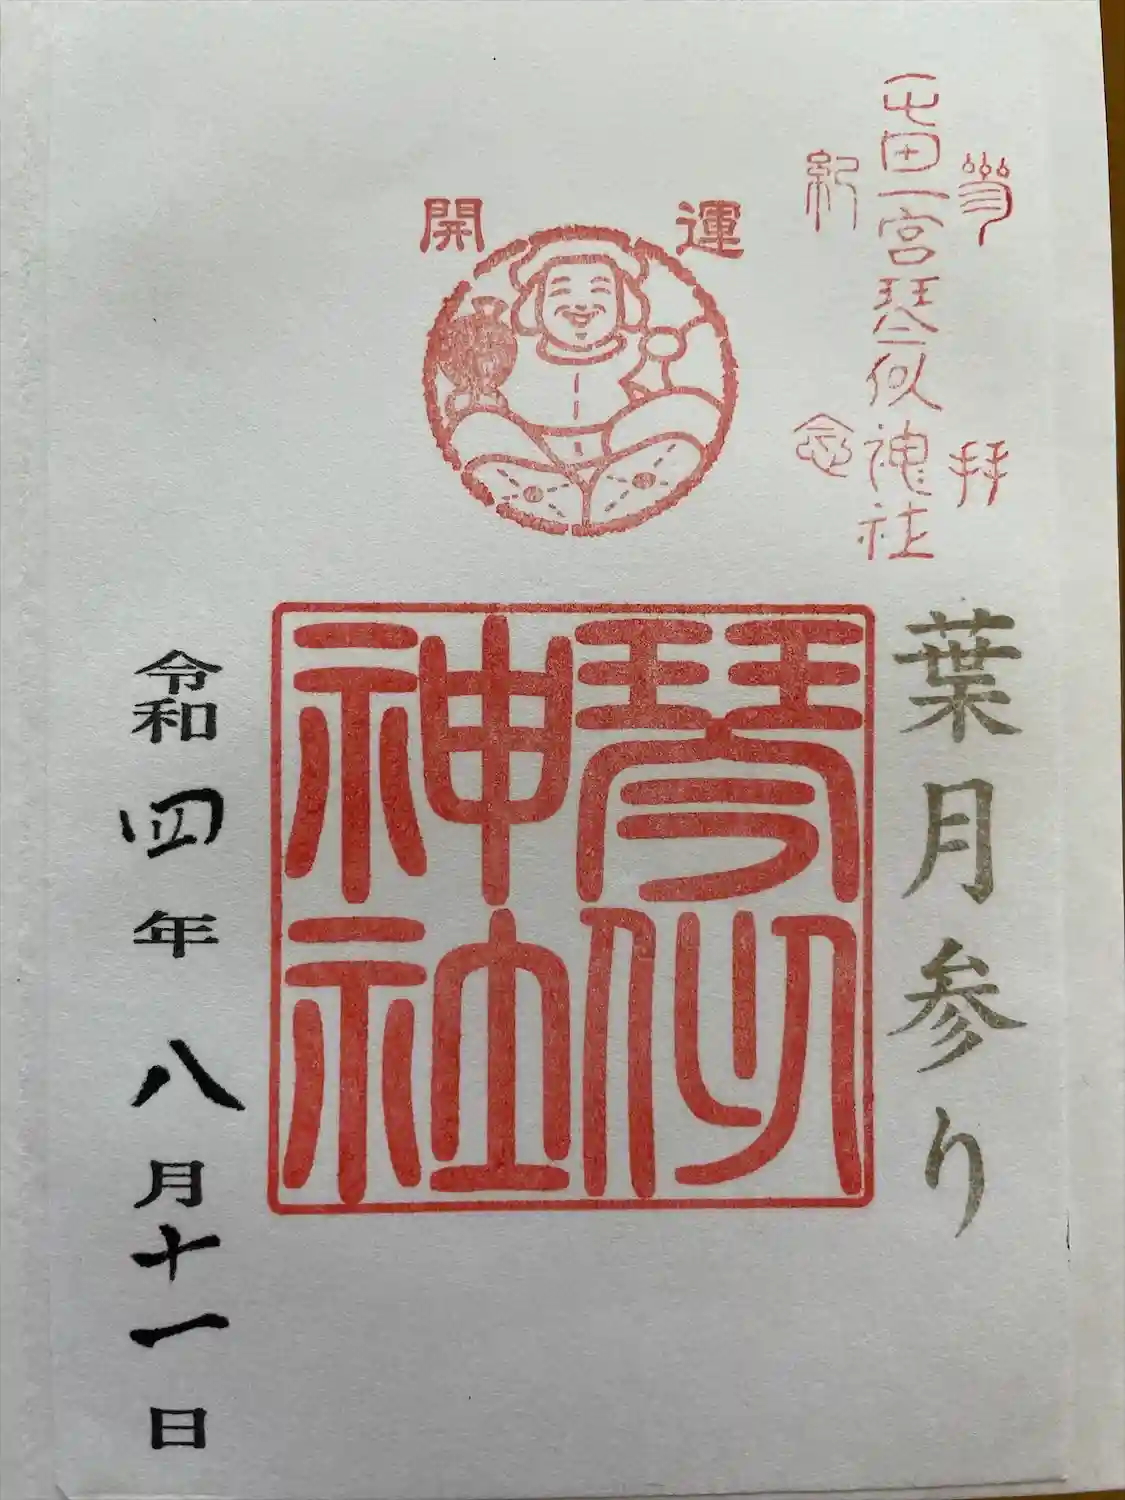 参拝
屯田一宮琴似神社
紀念
開運
葉月参り
琴似
神社
令和四年八月十一日